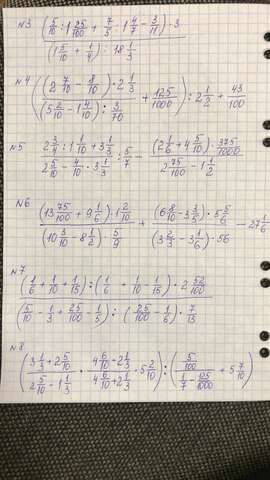 №3 (5/10 : 1 25/100 + 7/5 : 1 4/7 − 3/11) · 3
(1 5/10 + 1/4) : 18 1/3
№4 ((2 7/10 − 8/10) · 2 1/3
(5 2/10 − 1 4/10) : 3/70 + 125/1000) : 2 1/2 + 43/100
№5 2 3/4 : 1 1/10 + 3 1/3
2 5/10 − 4/10 · 3 1/3 : 5/7 − (2 1/6 + 4 5/10) · 375/1000
2 75/100 − 1 1/2
№6 (13 75/100 + 9 1/6) · 1 2/10
(10 3/10 − 8 1/2) · 5/9 + (6 8/10 − 3 3/5) · 5 5/6
(3 2/3 − 3 1/6) · 56 − 27 1/6
№7 (1/6 + 1/10 + 1/15) : (1/6 + 1/10 − 1/15) · 2 52/100
(5/10 − 1/3 + 25/100 − 1/5) : (25/100 − 1/6) · 7/13
№8 (3 1/3 + 2 5/10
2 5/10 − 1 1/3 · 4 6/10 − 2 1/3
4 6/10 + 2 1/3 · 5 2/10) : (5/100
1/7 − 125/1000 + 5 7/10)